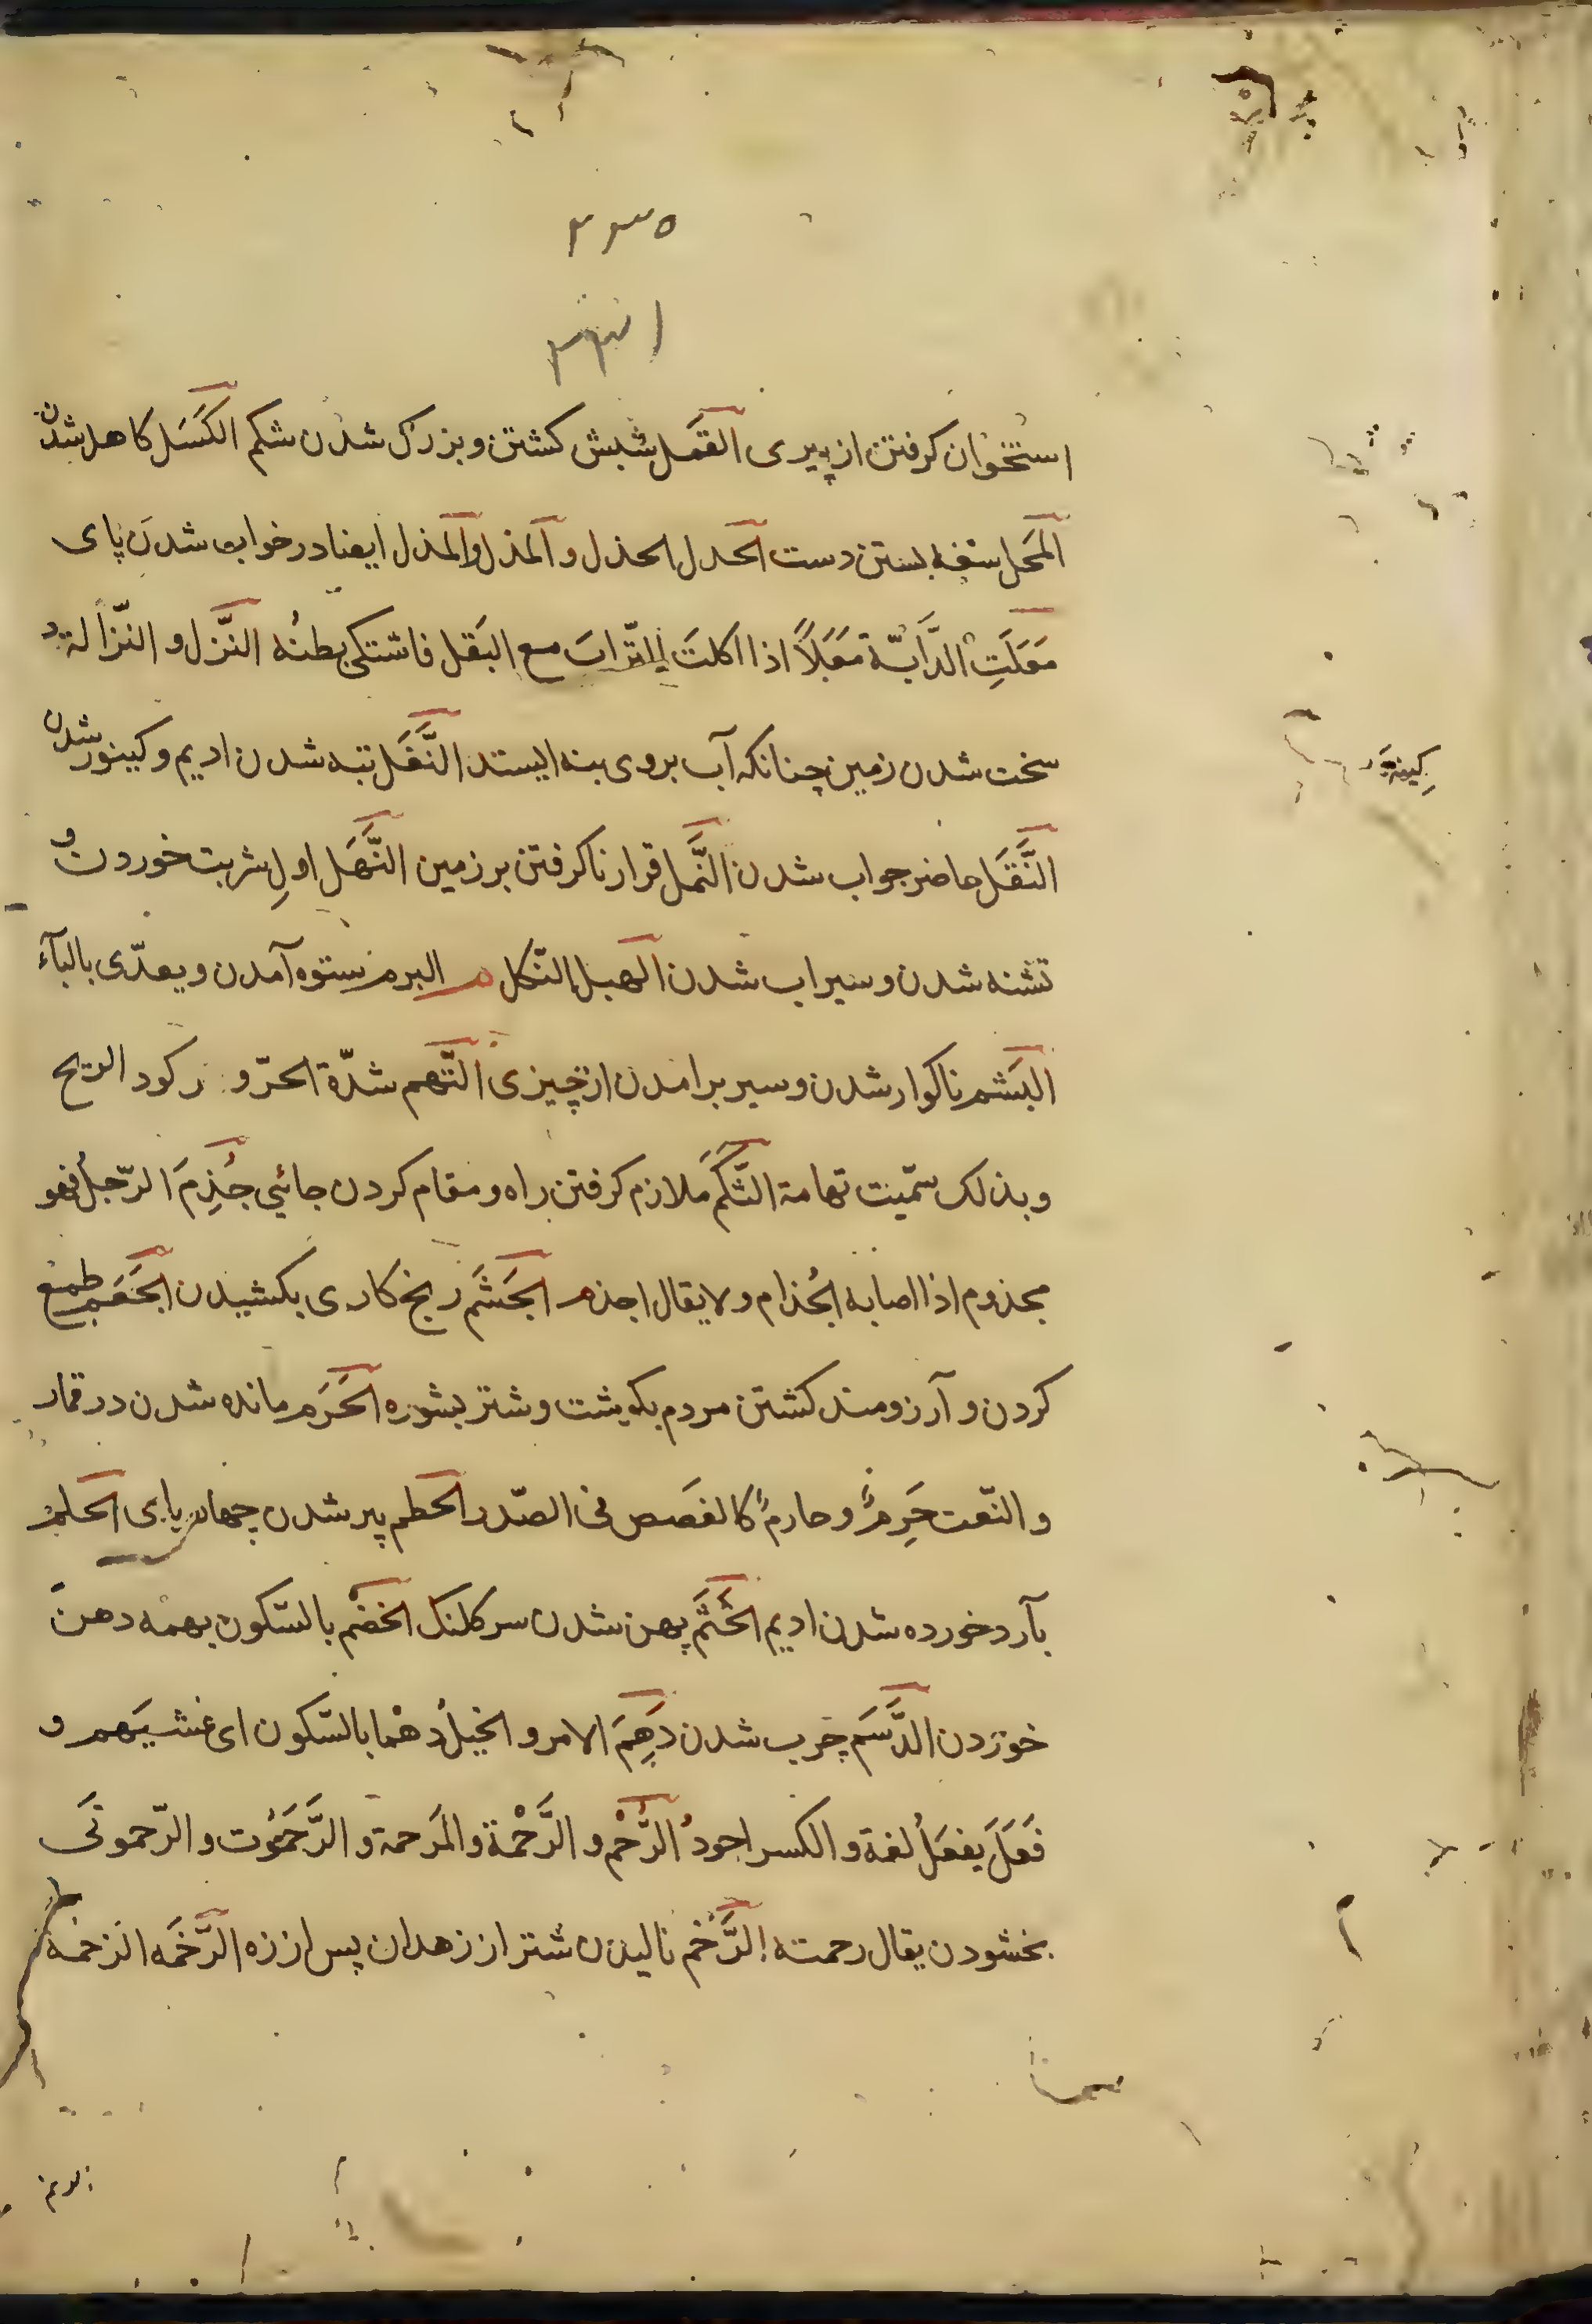 ۲۳۵
۲۳۱
استخوان کرفتن از پیری القَمَل شبش کشتن و بزرک شدن شکم الکَسَل کاهل شدن
المَجل شغه بستن دست الحدل الحذل و المذل والمذل ایضا در خواب شدن پای
مَغَلَتِ الدَّابّة مَغَلاً اذا اکلتَ التّرابَ مع البَقل فاشتکی بطنُه النَّزل و النّزالة
سخت شدن زمین چنانکه آب بروی بنه ایستد النَّغَل تبه شدن ادیم و کینور شدن
کِینَه وَر
النَّقَل حاضر جواب شدن النَّمل قرار ناکرفتن بر زمین النَّهَل اولِ شربت خوردن و
تشنه شدن و سیراب شدن الهبل الثّکل م البرم ستوه آمدن و یعدّی بالبآء
البَشَم ناکوار شدن و سیر برامدن از چیزی التَّهم شدّة الحرّ و رکود الریح
و بذلک سمّیت تهامة الثَّکَم ملازم کرفتن راه و مقام کردن جائی جُذِمَ الرّجلُ فهو
مجذوم اذا اصابه الجُذام و لا یقال اجذم الجَشَم رنج کاری بکشیدن الجَعَم طمع
کردن و آرزومند کشتن مردم بکوشت و شتر بشوره الحَرَم مانده شدن در قمار
و النّعت حَرِمٌ و حارمٌ کالغصَص فی الصّدر الحطم پیر شدن چهارپای الحلم
بآرد خورده شدن ادیم الخَثَم پهن شدن سر کلنک الخضْم بالسّکون بهمه دهن
خوردن الدَّسَم چرب شدن دَهِمَ الامر و الخیلُ دهْما بالسّکون ای غشیَهم و
فَعَلَ یفعَلُ لغة و الکسر اجودُ الرُّحْم و الرَّحْمَة و المَرحمة و الرَّحَمُوت و الرّحموتَی
بخشودن یقال رحمته الرَّخَم نالیدن شتر از زهدان پس از زه الرَّخَمَه الزخمة